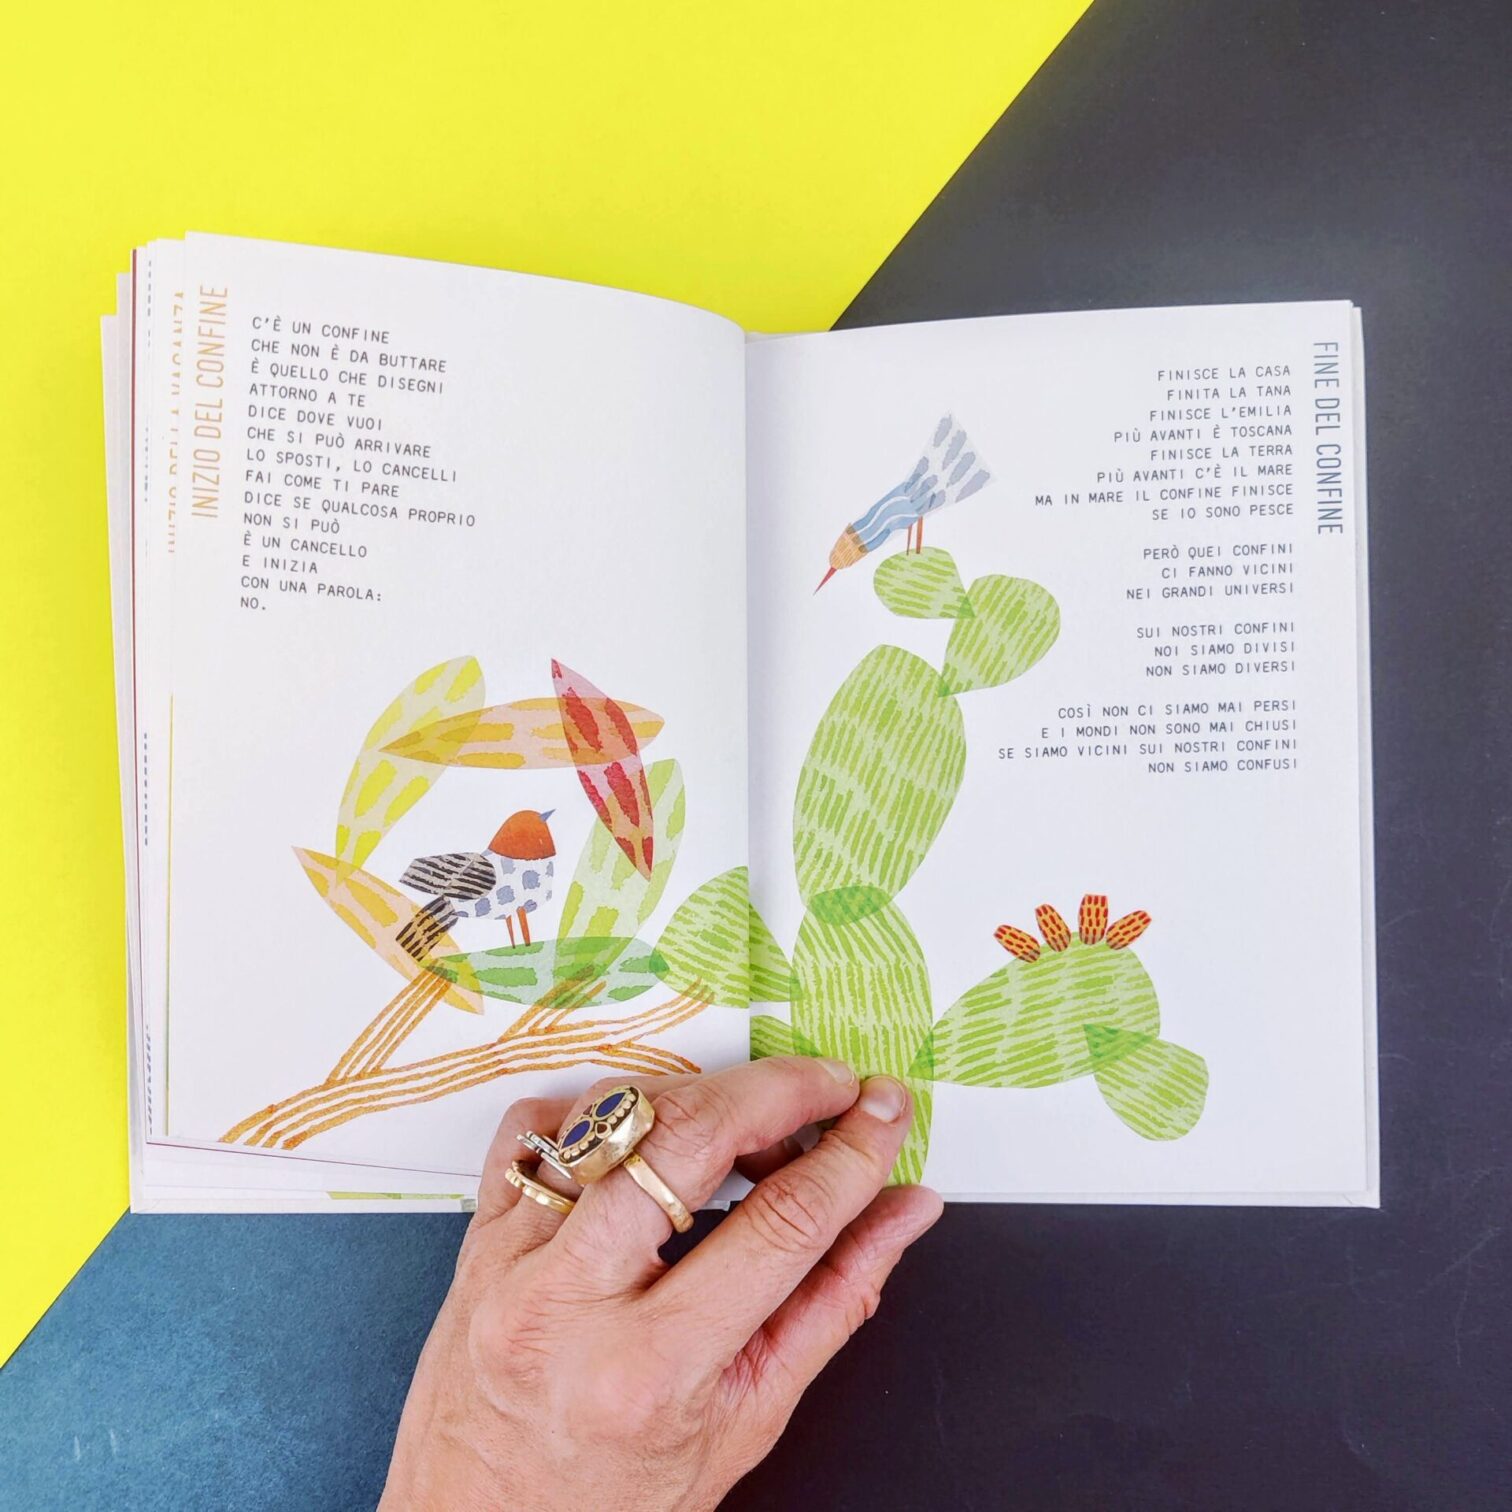 INIZIO DEL CONFINE
C'È UN CONFINE
CHE NON È DA BUTTARE
È QUELLO CHE DISEGNI
ATTORNO A TE
DICE DOVE VUOI
CHE SI PUÒ ARRIVARE
LO SPOSTI, LO CANCELLI
FAI COME TI PARE
DICE SE QUALCOSA PROPRIO
NON SI PUÒ
È UN CANCELLO
E INIZIA
CON UNA PAROLA:
NO.
FINE DEL CONFINE
FINISCE LA CASA
FINITA LA TANA
FINISCE L'EMILIA
PIÙ AVANTI È TOSCANA
FINISCE LA TERRA
PIÙ AVANTI C'È IL MARE
MA IN MARE IL CONFINE FINISCE
SE IO SONO PESCE
PERÒ QUEI CONFINI
CI FANNO VICINI
NEI GRANDI UNIVERSI
SUI NOSTRI CONFINI
NOI SIAMO DIVISI
NON SIAMO DIVERSI
COSÌ NON CI SIAMO MAI PERSI
E I MONDI NON SONO MAI CHIUSI
SE SIAMO VICINI SUI NOSTRI CONFINI
NON SIAMO CONFUSI